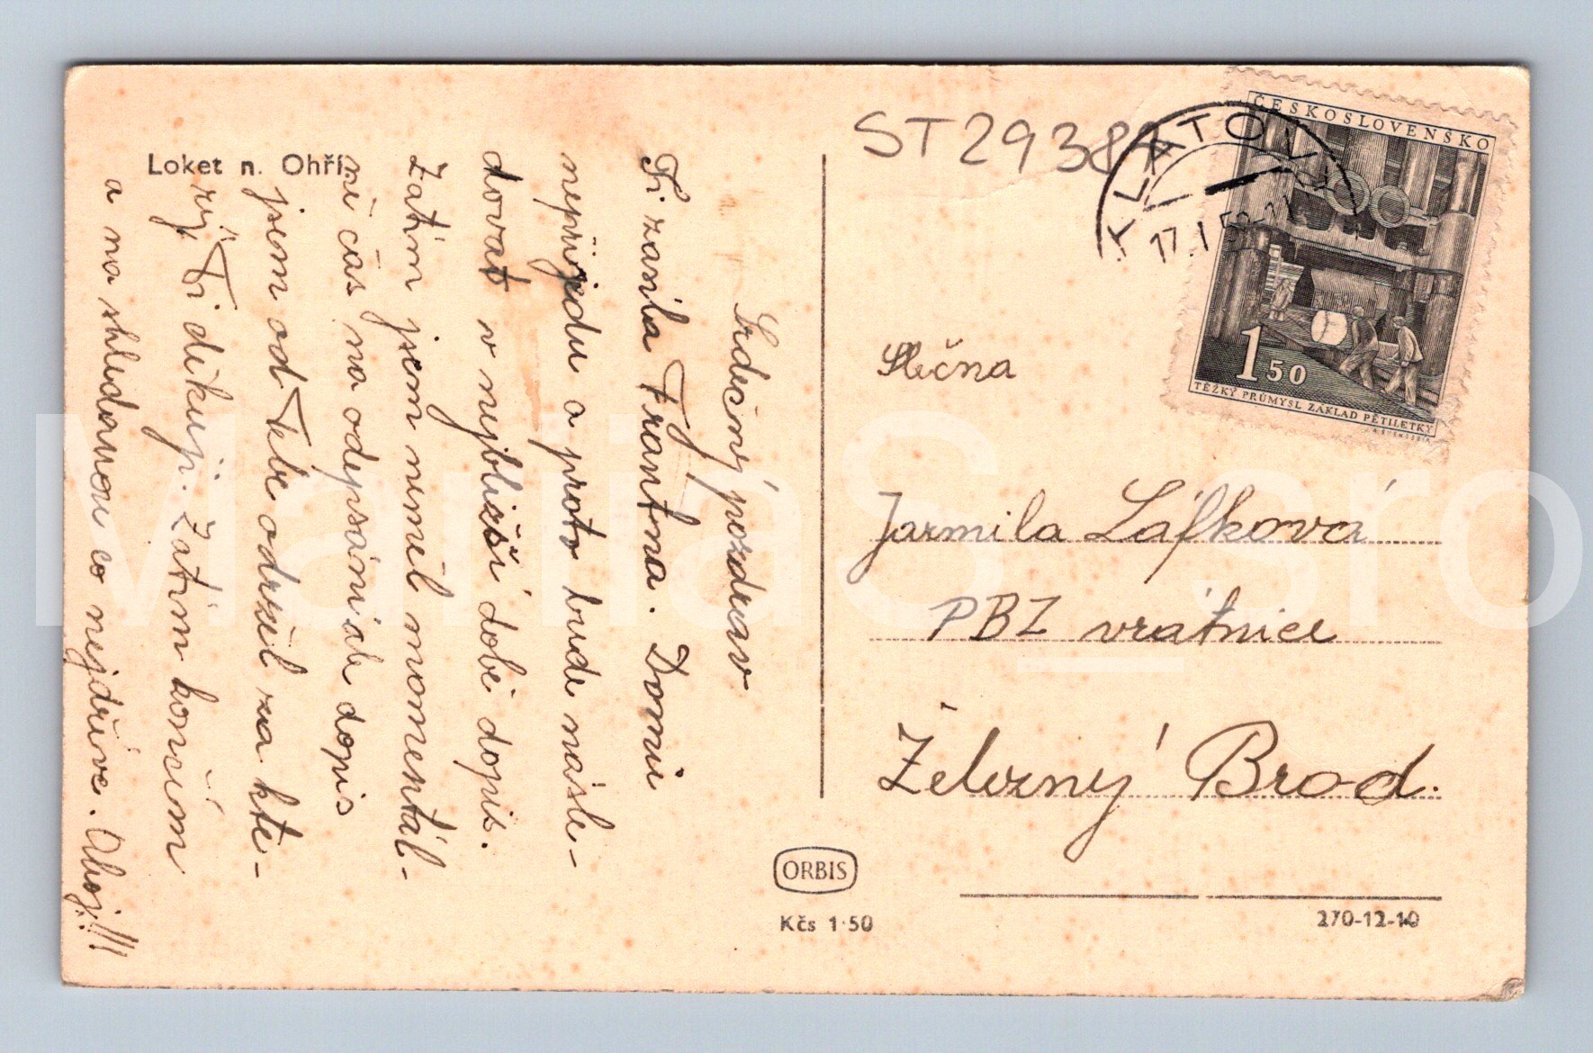 Loket n. Ohří.
Srdečný pozdrav
Ti zasíla Frantna. Domů
nepřijedu a proto bude násle-
dovat v nejbližší době dopis.
Zatím jsem neměl momentál-
ní čas na odepsání ale dopis
jsem od Tebe održel za kte-
rý Ti děkuji. Zatím končím
a na shledanou co nejdříve. Ahoj!!!
ST2938
KLATOVY
17.I.53-11
ČESKOSLOVENSKO
150
TĚŽKÝ PRŮMYSL ZÁKLAD PĚTILETKY
Slečna
Jarmila Láfková
PBZ vrátnice
Železný Brod.
ORBIS
Kčs 1·50
270-12-10
MariaS_sro